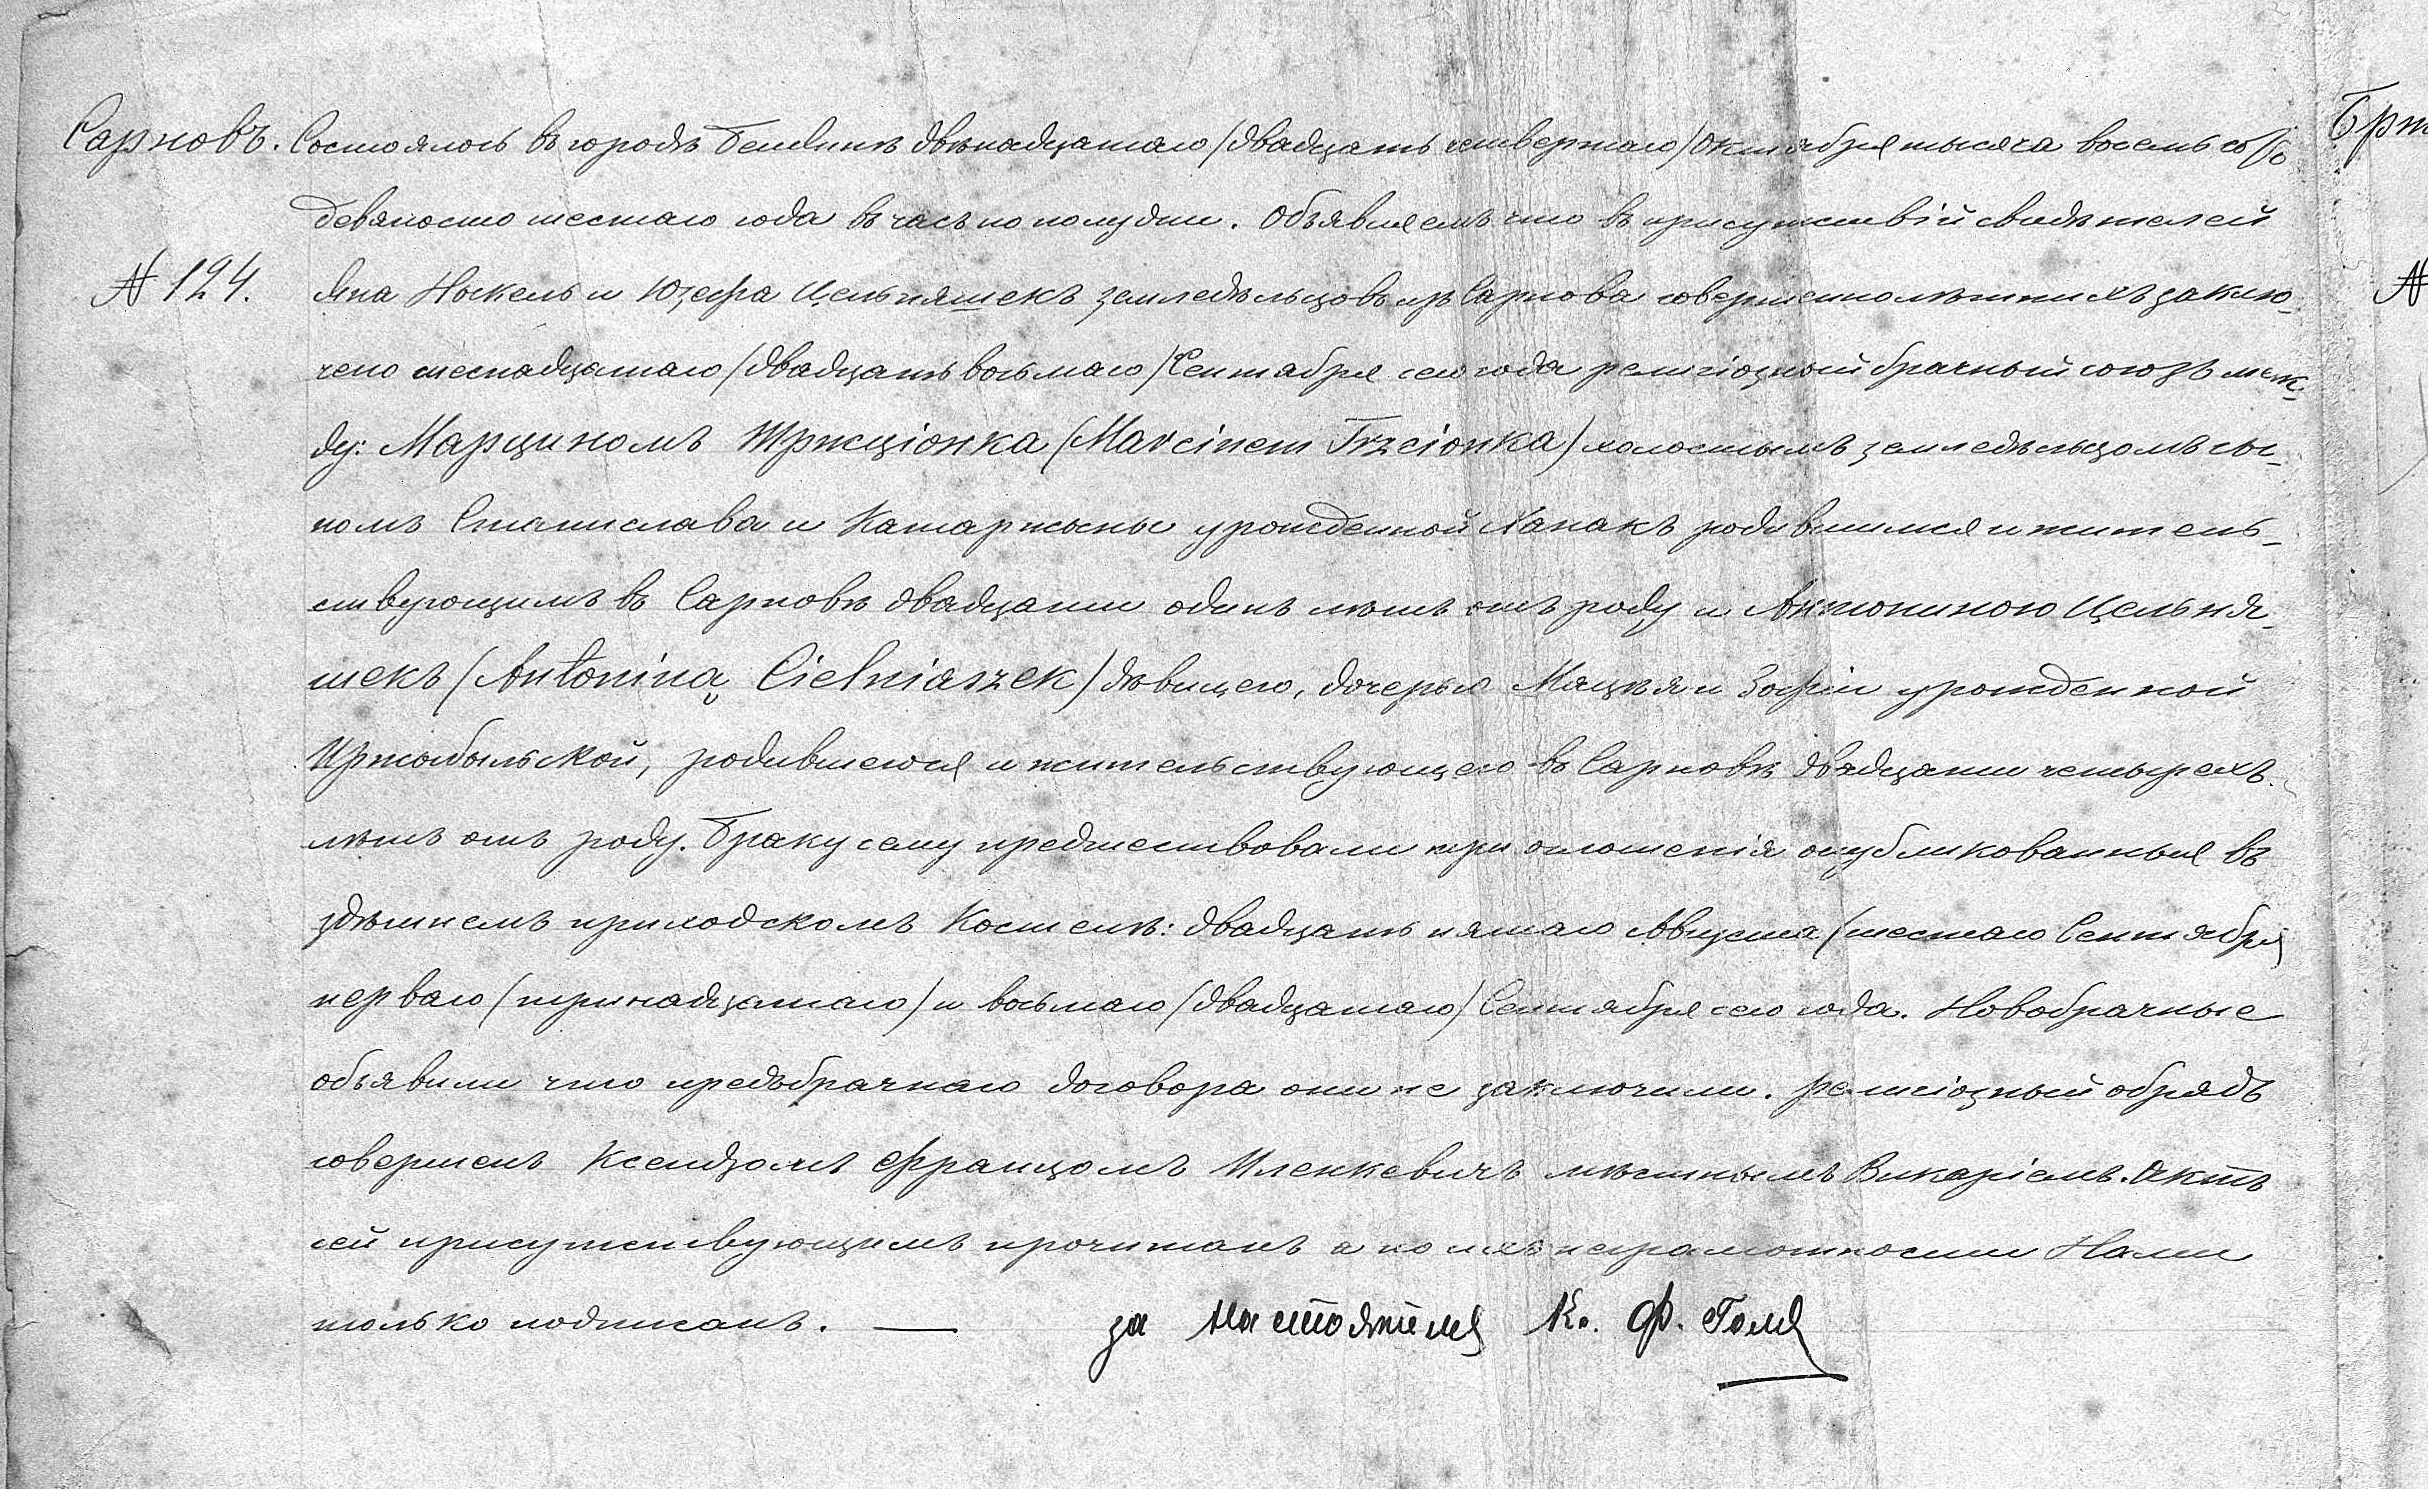 Сарновъ. Состоялось въ городѣ Бендинѣ двѣнадцатаго /двадцать четвертаго/ Октября тысяча восемь сотъ
девяносто шестаго года въ часъ по полудни. Объявляемъ что въ присутствіи свидѣтелей
N 124. Яна Нокель и Юзефа Цельняшекъ земледѣльцовъ изъ Сарнова совершеннолѣтнихъ заклю-
чено шеснадцатаго /двадцать восьмаго/ Сентября сего года религіозный брачный союзъ меж-
ду: Марциномъ Тржціонка (Marcinem Trzcionka) холостымъ земледѣльцомъ сы-
номъ Станислава и Катаржыны урожденной Ханакъ родившимся и житель-
ствующимъ въ Сарновѣ двадцати одинъ лѣтъ отъ роду и Антониною Цельня-
шекъ (Antoniną Cielniaszek) дѣвицею, дочерью Мацѣя и Зофіи урожденной
Пржыбыльской, родившеюся и жительствующею въ Сарновѣ двадцати четырехъ
лѣтъ отъ роду. Браку сему предшествовали три оглошенія опубликованныя въ
здѣшнемъ приходскомъ Костелѣ: двадцать пятаго Августа /шестаго Сентября
перваго /тринадцатаго/ и восьмаго /двадцатаго/ Сентября сего года. Новобрачные
объявили что предъбрачнаго договора они не заключили. Религіозный обрядъ
совершенъ Ксендзомъ Францомъ Пленкевичъ мѣстнымъ Викаріемъ. Актъ
сей присутствующимъ прочитанъ а по ихъ неграмотности Нами
только подписанъ. — за Настоятеля К. Ф. Гола
Брж
N